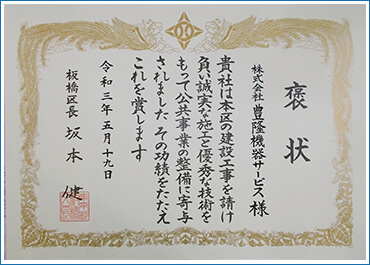 褒状
株式会社 豊隆機器サービス 様
貴社は本区の建設工事を請け
負い誠実な施工と優秀な技術を
もって公共事業の整備に寄与
されました その功績をたたえ
これを賞します
令和三年五月十九日
板橋区長 坂本 健